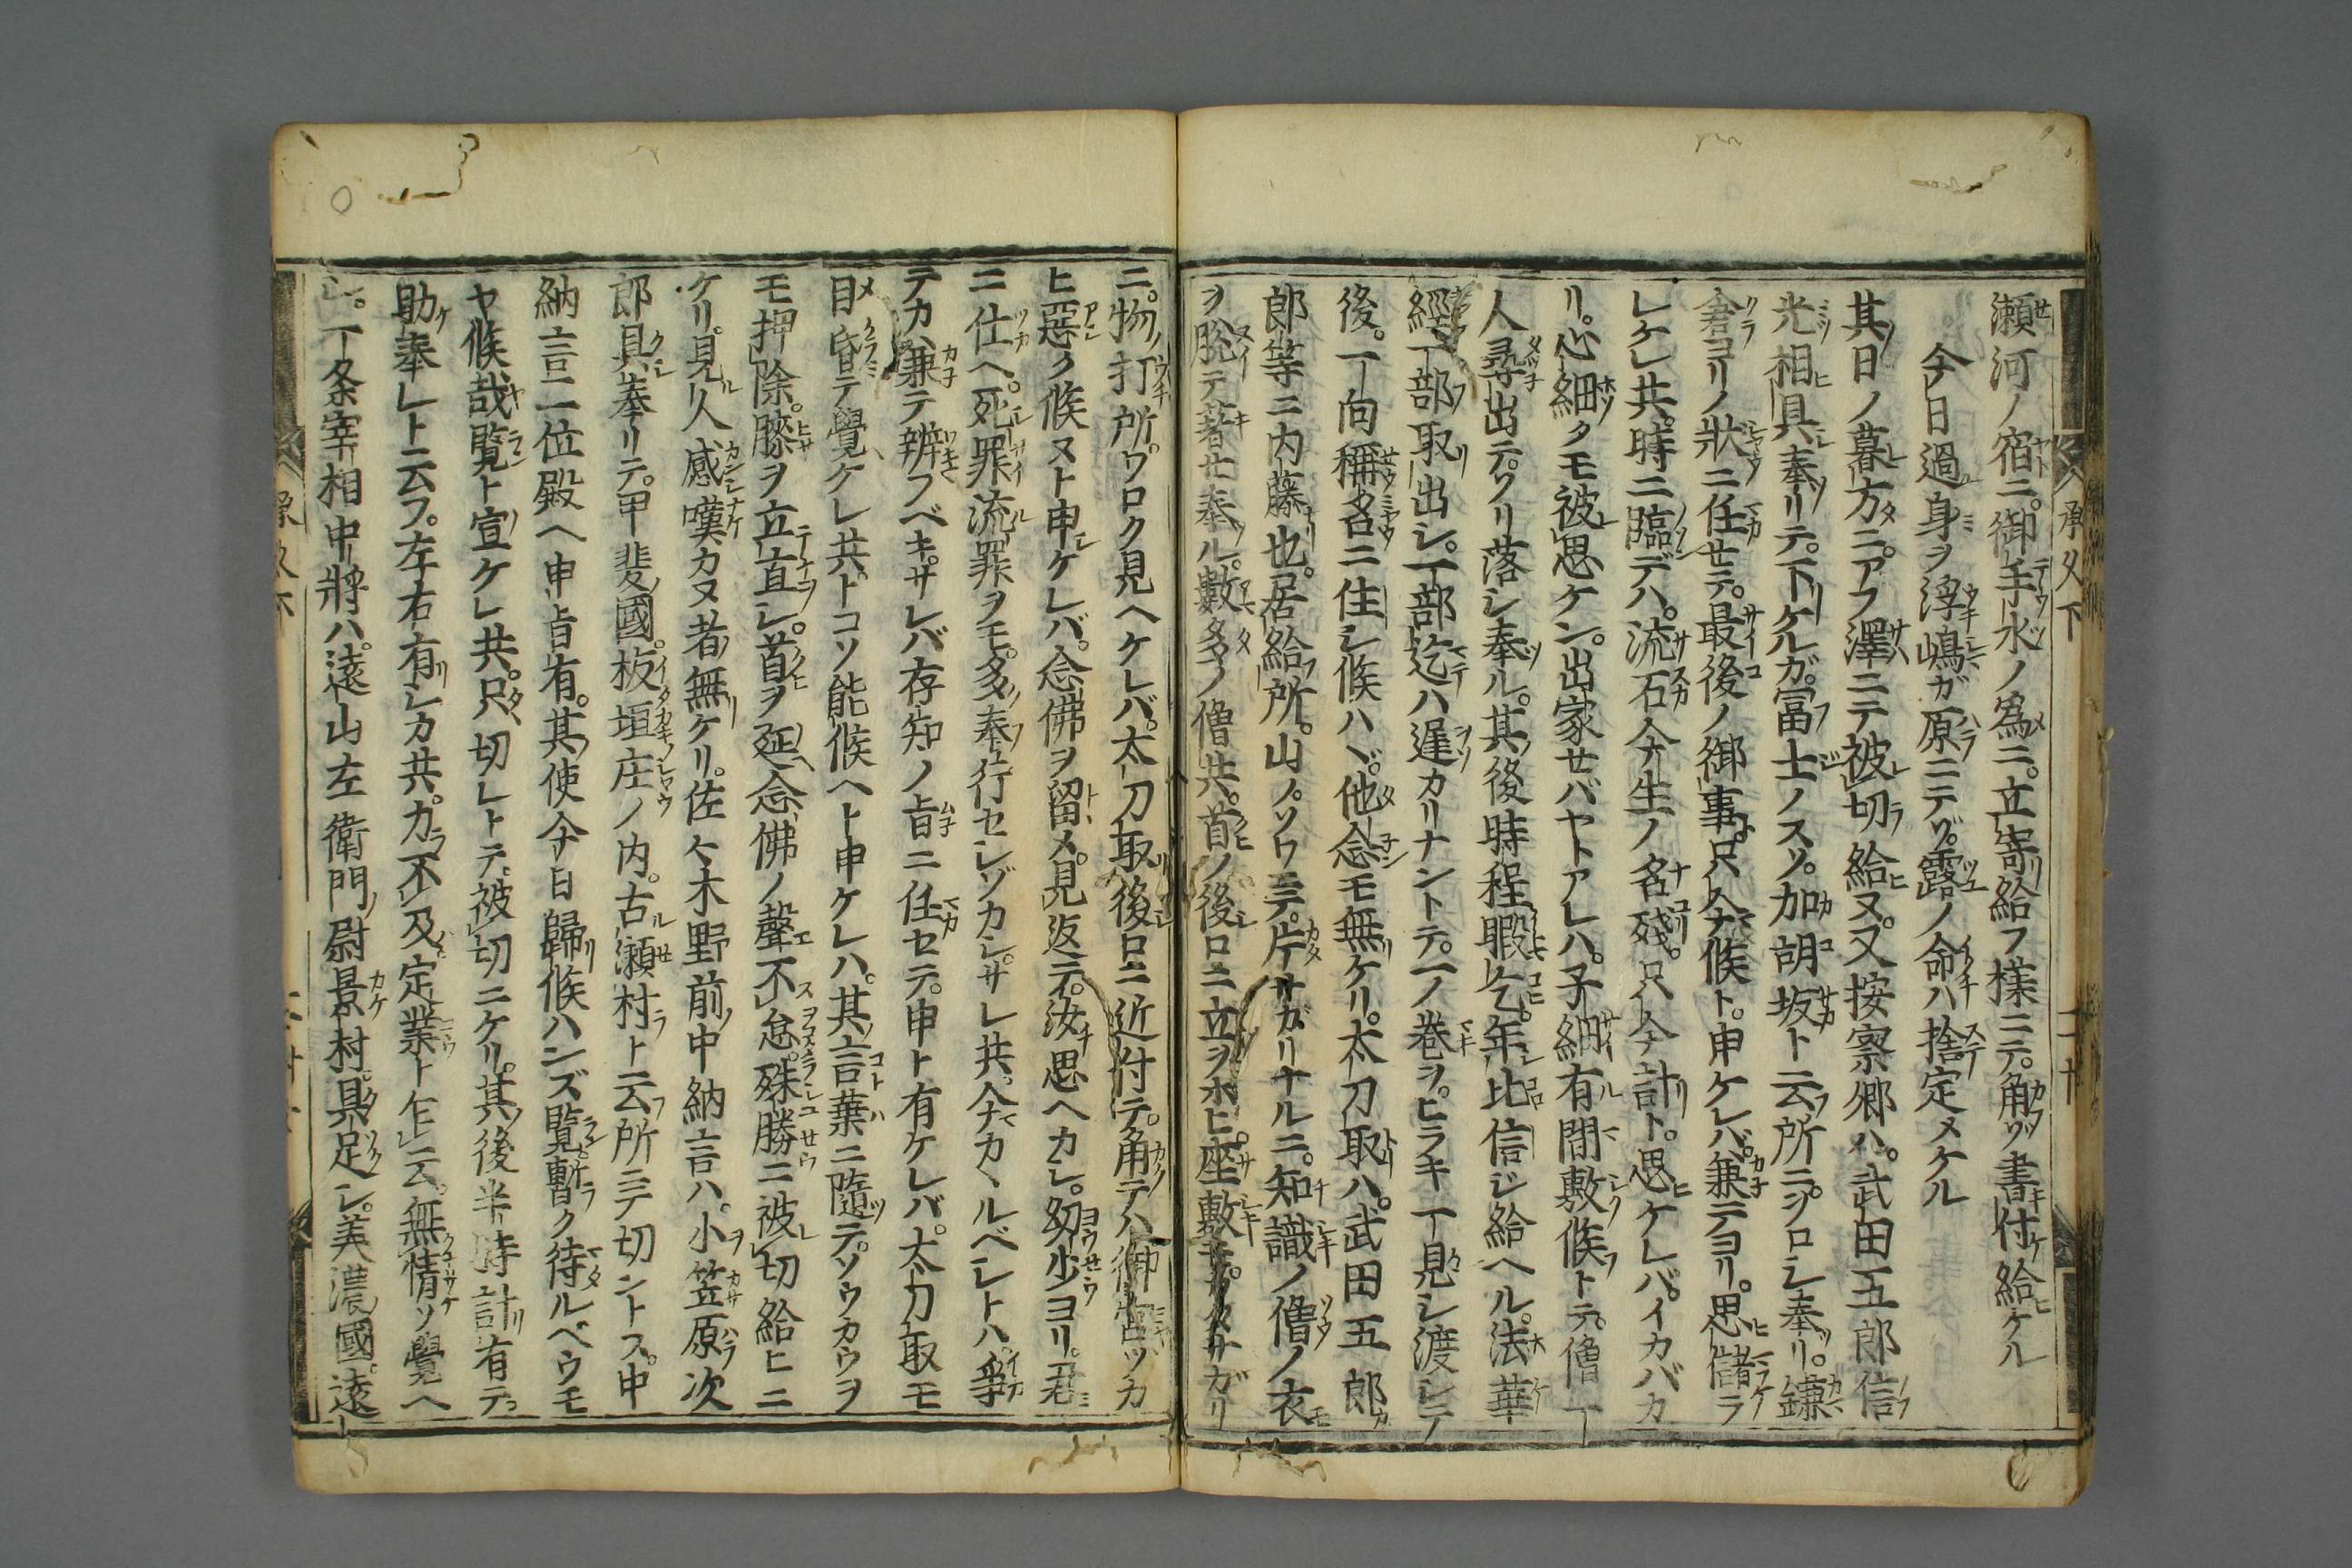 承久下
瀬河ノ宿ニ。御手水ノ為ニ。立寄給フ様ニテ。角ゾ書付給ケル
今日過身ヲ浮嶋ガ原ニテゾ。露ノ命ハ捨定メケル
其日ノ暮方ニ。アフ澤ニテ被切給ヌ。又按察卿ハ。武田五郎信
光相具奉リテ。下ケルガ。冨士ノスソ。加胡坂ト云所ニ。ヲロシ奉リ。鎌
倉ヨリノ狀ニ任セテ。最後ノ御事。只今ナ候ト。申ケレバ。兼テヨリ。思儲ラ
レケレ共。時ニ臨デハ。流石今ナ生ノ名殘。只今計ト。思ケレバ。イカバカ
リ。心細クモ被思ケン。出家セバヤトアレハ。子細有間敷候トテ。僧一
人尋出テ。ソリ落シ奉ル。其後時程暇乞。年比信ジ給ヘル。法華
經一部取出シ。一部迄ハ遅カリナントテ。一ノ巻ヲ。ヒラキ一見シ渡シテ
後。一向稱名ニ住シ候ハヾ。他念モ無ケリ。太刀取ハ。武田五郎カ
郎等ニ内藤也。居給所。山ノ。ソワニテ。片サガリナルニ。知識ノ僧ノ衣
ヲ脱テ著セ奉ル。數多ノ僧共。首ノ後ロニ立ヲホヒ。座敷モカタサガリ
ニ。物打所。ワロク見ヘケレバ。太刀取後ロニ近付テ。角テハ御首ツカ
ヒ惡ク候ヌト申ケレバ。念佛ヲ留メ。見返テ。汝思ヘカシ。幼少ヨリ。君
ニ仕ヘ。死罪流罪ヲモ。多奉行セシゾカシ。サレ共。今カヽルベシトハ。爭
テカ。兼テ辨フベキ。サレバ存知ノ旨ニ任セテ。申ト有ケレバ。太刀取モ
目昏テ覺ケレ共。トコソ能候ヘト申ケレハ。其言葉ニ隨テ。ソウカウヲ
モ押除。膝ヲ立直シ。首ヲ延。念佛ノ聲不怠。殊勝ニ被切給ヒニ
ケリ。見人感嘆カヌ者無ケリ。佐々木野前中納言ハ。小笠原次
郎具奉リテ。甲斐國。板垣庄ノ内。古瀬村ト云所ニテ切ントス。中
納言二位殿ヘ申旨有。其使今日歸候ハンズ覧。暫ク待ルベウモ
ヤ候哉覧ト宣ケレ共。只切レトテ。被切ニケリ。其後半時計有テ。
助奉レト云フ。左右有シカ共。力不及。定業ト乍云。無情ソ覺ヘ
シ。一条宰相中將ハ。遠山左衛門尉景村。具足シ。美濃國。遠